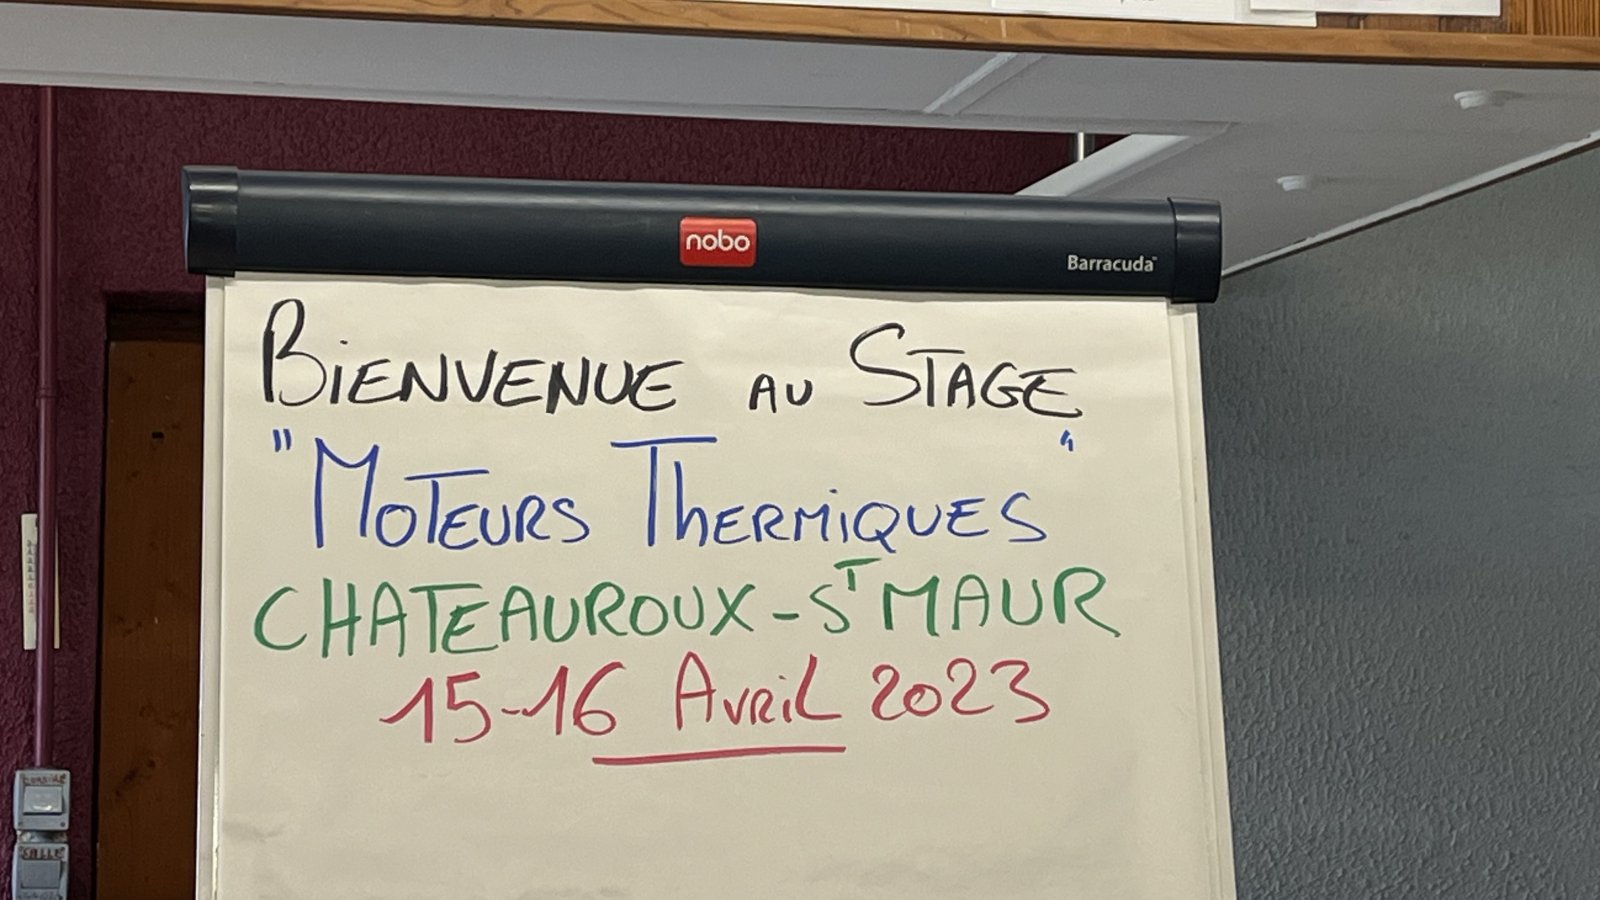 nobo
Barracuda™
BiENVENUE AU STAGE
"MOTEURS ThERMiQUES"
CHATEAUROUX-ST MAUR
15-16 AvRiL 2023
SALLE